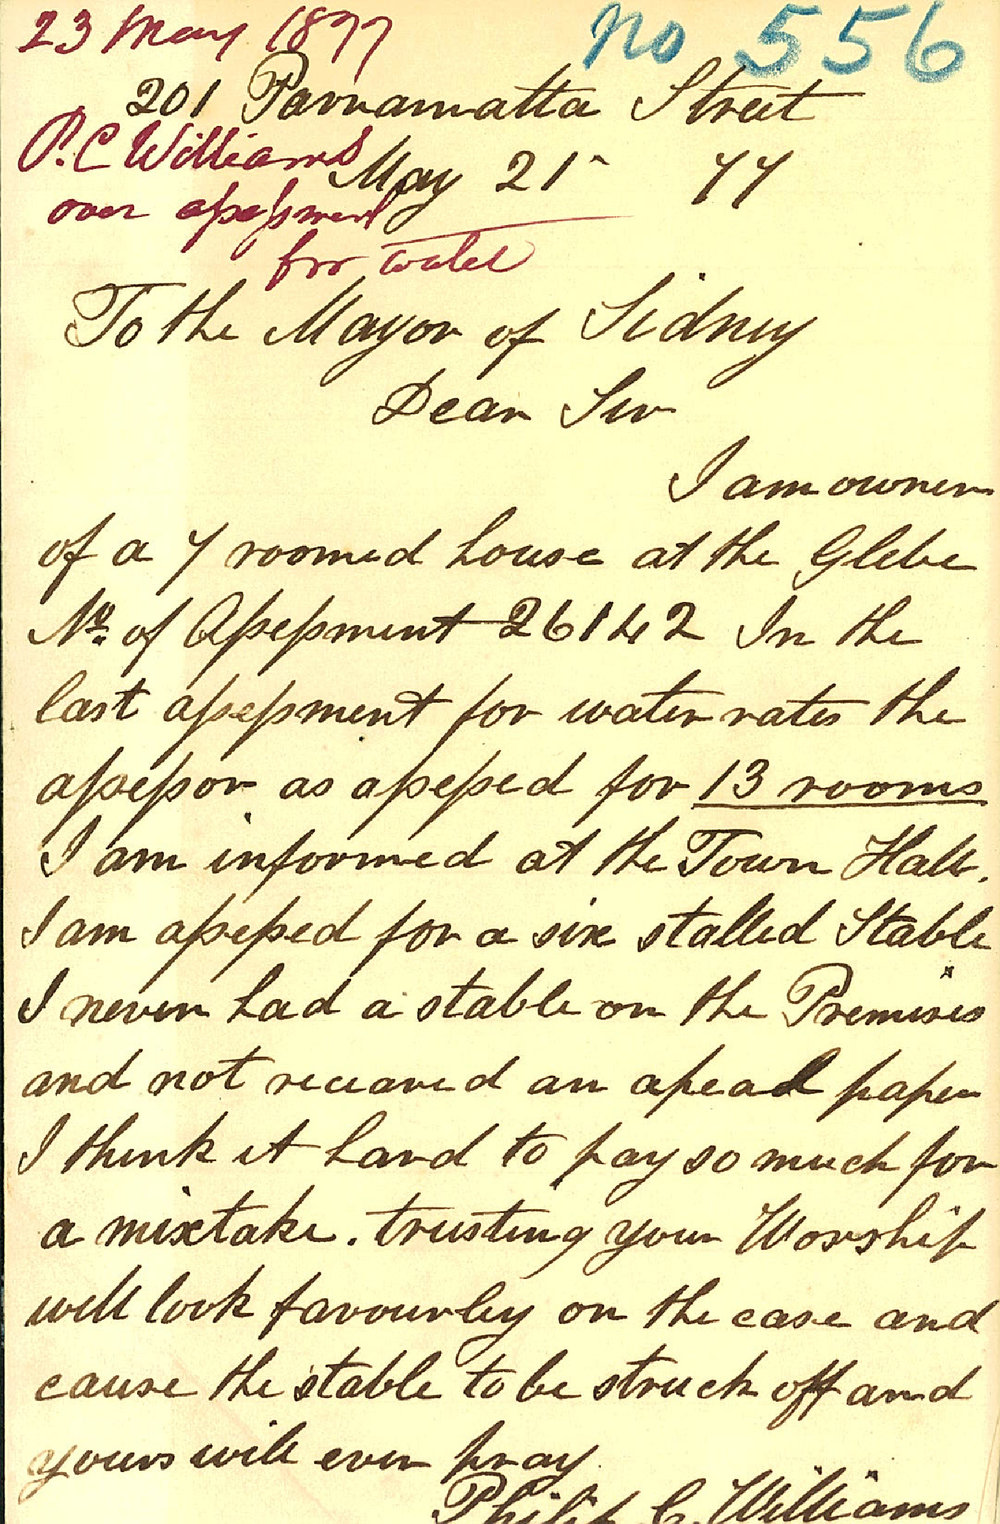 23 May 1877
no 556
201 Parramatta Street
P. C Williams
May 21st 77
over assessment
for water
To the Mayor of Sidney
Dear Sir
I am owner
of a 7 roomed house at the Glebe
No. of Assessment 26142 In the
last assessment for water rates the
assessor as assessed for 13 rooms
I am informed at the Town Hall.
I am assessed for a six stalled Stable
I never had a stable on the Premises
and not receaved an apeal paper
I think it hard to pay so much for
a mixtake. trusting your Worship
will look favourley on the case and
cause the stable to be struck off and
yours will ever pray
Philip C. Williams